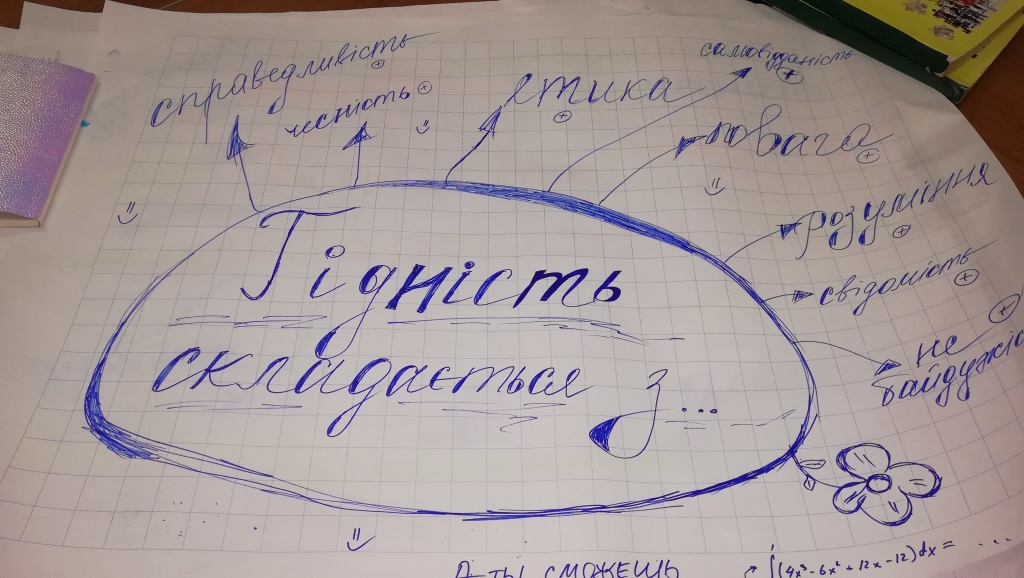 справедливість
чесність
етика
самовідданість
повага
розуміння
свідомість
не
байдужіс
Гідність
складається з...
А ти сможешь
∫(4x³-6x²+12x-12)dx= ...